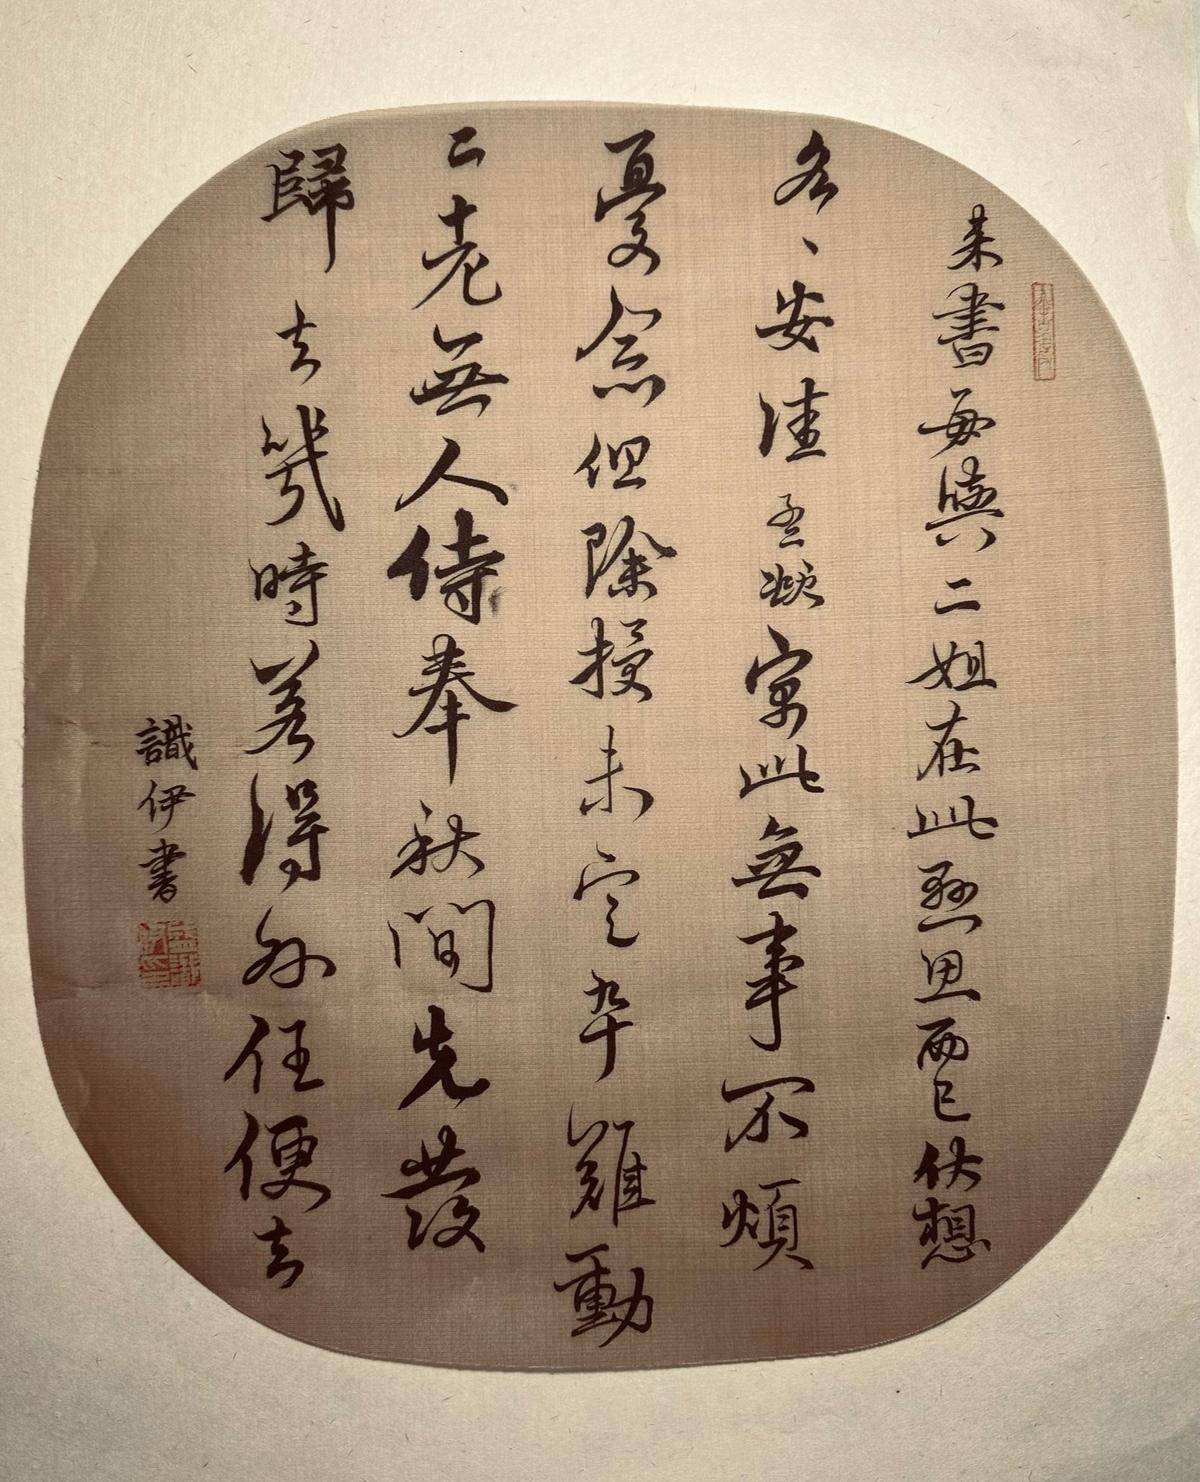 来書每與二姐在此思而已伏想
各、安佳孟寓此無事不煩
憂念但除授未定卒難動
二老無人侍奉秋間先發
歸去幾時若得外任便去
識伊書